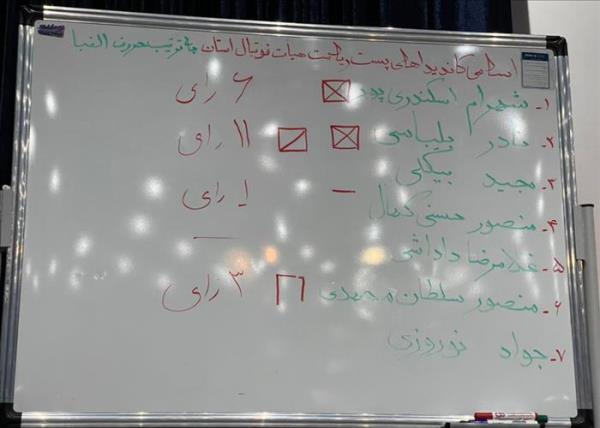 اسامی کاندیداهای پست ریاست هیات فوتبال استان به ترتیب حروف الفبا
۱- شهرام اسکندری پور ۶ رای
۲- نادر یلپاسی ۱۱ رای
۳- مجید بیگلی
۴- منصور حسنی کمال ۱ رای
۵- غلامرضا داداشی
۶- منصور سلطان محمدی ۳ رای
۷- جواد نوروزی